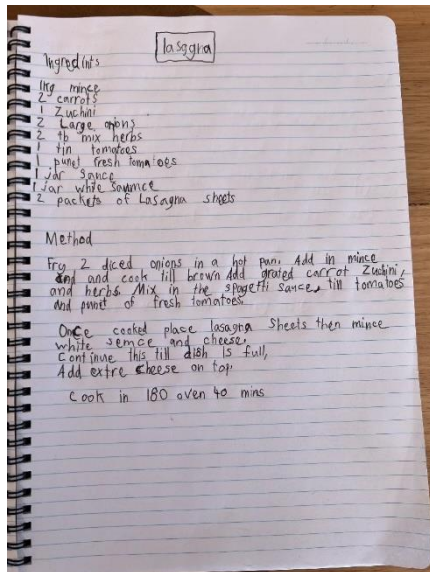 lasagna
Ingredints
1kg mince
2 carrots
1 Zuchini
2 Large onions
2 tb mix herbs
1 tin tomatoes
1 punet fresh tomatoes
1 jar Sance
1 jar white Saunce
2 packets of Lasagna sheets
Method
Fry 2 diced onions in a hot pan. Add in mince
and and cook till brown Add grated carrot Zuchini,
and herbs. Mix in the spagetti sance, till tomatoes
and punet of fresh tomatoes
Once cooked place lasagna Sheets then mince
white semce and cheese.
Continue this till dish is full,
Add extre cheese on top.
Cook in 180 oven 40 mins